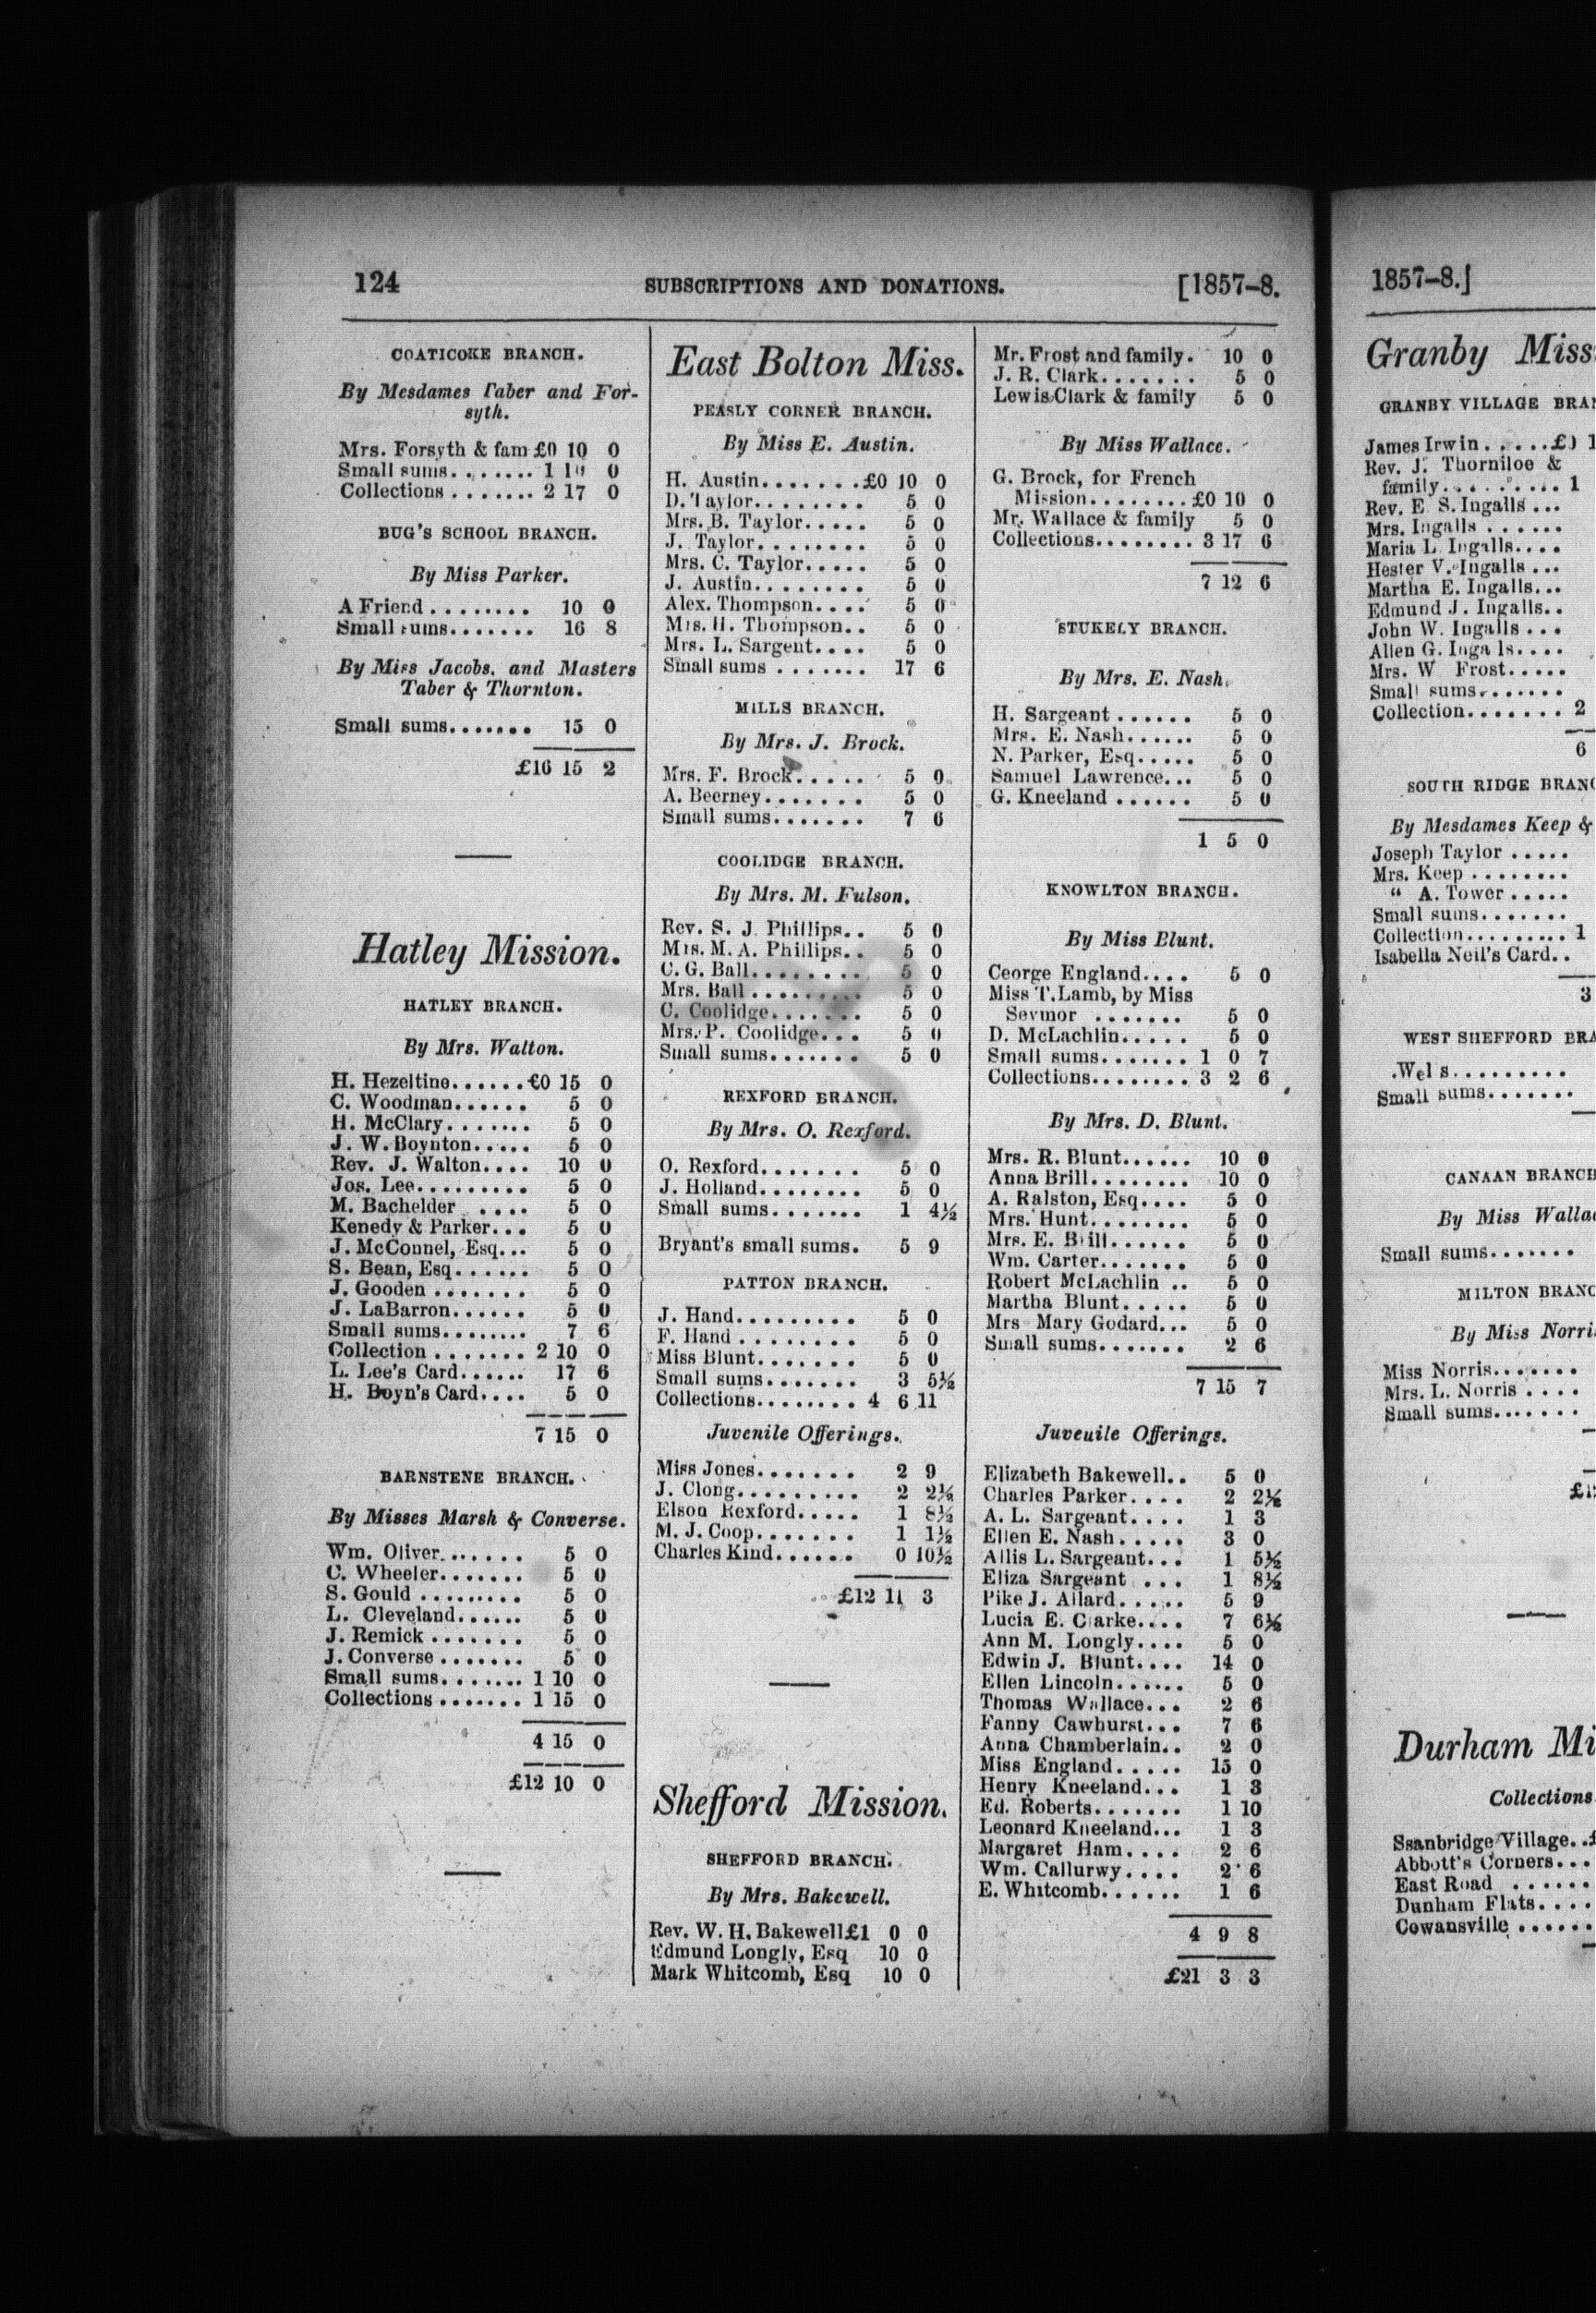 124 SUBSCRIPTIONS AND DONATIONS. [1857-8.
COATICOKE BRANCH.
By Mesdames Taber and For-
syth.
Mrs. Forsyth & fam £0 10 0
Small sums........ 1 10 0
Collections ....... 2 17 0
BUG'S SCHOOL BRANCH.
By Miss Parker.
A Friend ........ 10 0
Small sums....... 16 8
By Miss Jacobs, and Masters
Taber & Thornton.
Small sums....... 15 0
£16 15 2
Hatley Mission.
HATLEY BRANCH.
By Mrs. Walton.
H. Hezeltine......£0 15 0
C. Woodman...... 5 0
H. McClary....... 5 0
J. W. Boynton..... 5 0
Rev. J. Walton.... 10 0
Jos. Lee......... 5 0
M. Bachelder .... 5 0
Kenedy & Parker... 5 0
J. McConnel, Esq... 5 0
S. Bean, Esq...... 5 0
J. Gooden ....... 5 0
J. LaBarron...... 5 0
Small sums........ 7 6
Collection ....... 2 10 0
L. Lee's Card...... 17 6
H. Boyn's Card.... 5 0
7 15 0
BARNSTENE BRANCH.
By Misses Marsh & Converse.
Wm. Oliver....... 5 0
C. Wheeler....... 5 0
S. Gould ......... 5 0
L. Cleveland...... 5 0
J. Remick ....... 5 0
J. Converse ....... 5 0
Small sums....... 1 10 0
Collections ....... 1 15 0
4 15 0
£12 10 0
East Bolton Miss.
PEASLY CORNER BRANCH.
By Miss E. Austin.
H. Austin.......£0 10 0
D. Taylor........ 5 0
Mrs. B. Taylor..... 5 0
J. Taylor........ 5 0
Mrs. C. Taylor..... 5 0
J. Austin........ 5 0
Alex. Thompson.... 5 0
Mrs. H. Thompson.. 5 0
Mrs. L. Sargent.... 5 0
Small sums ....... 17 6
MILLS BRANCH.
By Mrs. J. Brock.
Mrs. F. Brock..... 5 0
A. Beerney....... 5 0
Small sums....... 7 6
COOLIDGE BRANCH.
By Mrs. M. Fulson.
Rev. S. J. Phillips.. 5 0
Mrs. M. A. Phillips.. 5 0
C. G. Ball........ 5 0
Mrs. Ball ......... 5 0
C. Coolidge....... 5 0
Mrs. P. Coolidge... 5 0
Small sums....... 5 0
REXFORD BRANCH.
By Mrs. O. Rexford.
O. Rexford....... 5 0
J. Holland........ 5 0
Small sums....... 1 4½
Bryant's small sums. 5 9
PATTON BRANCH.
J. Hand......... 5 0
F. Hand ........ 5 0
Miss Blunt....... 5 0
Small sums....... 3 5½
Collections........ 4 6 11
Juvenile Offerings.
Miss Jones....... 2 9
J. Clong......... 2 2½
Elson Rexford..... 1 8½
M. J. Coop....... 1 1½
Charles Kind...... 0 10½
£12 11 3
Shefford Mission.
SHEFFORD BRANCH.
By Mrs. Bakewell.
Rev. W. H. Bakewell £1 0 0
Edmund Longly, Esq 10 0
Mark Whitcomb, Esq 10 0
Mr. Frost and family. 10 0
J. R. Clark....... 5 0
Lewis Clark & family 5 0
By Miss Wallace.
G. Brock, for French
Mission........£0 10 0
Mr. Wallace & family 5 0
Collections........ 3 17 6
7 12 6
STUKELY BRANCH.
By Mrs. E. Nash.
H. Sargeant ...... 5 0
Mrs. E. Nash...... 5 0
N. Parker, Esq..... 5 0
Samuel Lawrence... 5 0
G. Kneeland ...... 5 0
1 5 0
KNOWLTON BRANCH.
By Miss Blunt.
Ceorge England.... 5 0
Miss T. Lamb, by Miss
Seymor ....... 5 0
D. McLachlin..... 5 0
Small sums....... 1 0 7
Collections........ 3 2 6
By Mrs. D. Blunt.
Mrs. R. Blunt...... 10 0
Anna Brill........ 10 0
A. Ralston, Esq.... 5 0
Mrs. Hunt........ 5 0
Mrs. E. Brill...... 5 0
Wm. Carter....... 5 0
Robert McLachlin .. 5 0
Martha Blunt..... 5 0
Mrs Mary Godard... 5 0
Small sums....... 2 6
7 15 7
Juveuile Offerings.
Elizabeth Bakewell.. 5 0
Charles Parker.... 2 2½
A. L. Sargeant.... 1 3
Ellen E. Nash..... 3 0
Allis L. Sargeant... 1 5½
Eliza Sargeant ... 1 8½
Pike J. Allard..... 5 9
Lucia E. Clarke.... 7 6½
Ann M. Longly.... 5 0
Edwin J. Blunt.... 14 0
Ellen Lincoln...... 5 0
Thomas Wallace... 2 6
Fanny Cawhurst... 7 6
Anna Chamberlain.. 2 0
Miss England..... 15 0
Henry Kneeland... 1 3
Ed. Roberts....... 1 10
Leonard Kneeland... 1 3
Margaret Ham.... 2 6
Wm. Callurwy.... 2 6
E. Whitcomb...... 1 6
4 9 8
£21 3 3
1857-8.]
Granby Miss
GRANBY VILLAGE BRAN
James Irwin......£) 1
Rev. J. Thorniloe &
family.......... 1
Rev. E S. Ingalls ...
Mrs. Ingalls ......
Maria L. Ingalls....
Hester V. Ingalls ...
Martha E. Ingalls...
Edmund J. Ingalls..
John W. Ingalls ...
Allen G. Inga ls....
Mrs. W Frost.....
Small sums.......
Collection....... 2
6
SOUTH RIDGE BRANC
By Mesdames Keep &
Joseph Taylor .....
Mrs. Keep ........
" A. Tower .....
Small sums.......
Collection......... 1
Isabella Neil's Card..
3
WEST SHEFFORD BRA
.Wel s.........
Small sums.......
CANAAN BRANCH
By Miss Wallac
Small sums.......
MILTON BRANC
By Miss Norri
Miss Norris.......
Mrs. L. Norris ....
Small sums.......
£1
Durham Mi
Collections
Ssanbridge Village..£
Abbott's Corners...
East Road ......
Dunham Flats....
Cowansville ......